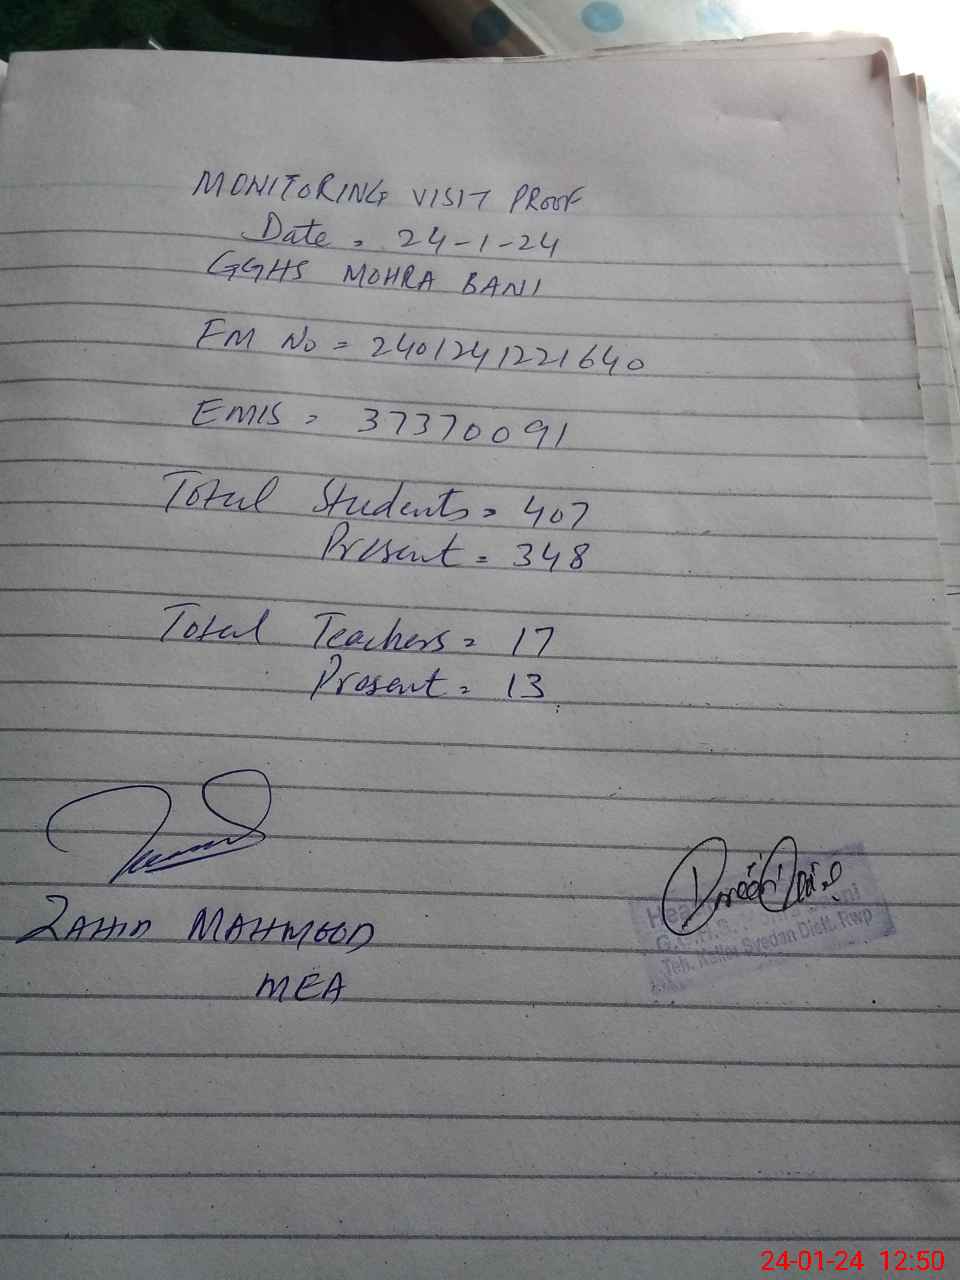 MONITORING VISIT PROOF
Date = 24-1-24
GGHS MOHRA BANI
FM No = 2401241221640
EMIS = 37370091
Total Students = 407
Present = 348
Total Teachers = 17
Present = 13
ZAHID MAHMOOD
MEA
Hea
G.G.H.S.
Teh. Kaller Syedan Distt. Rwp
24-01-24 12:50